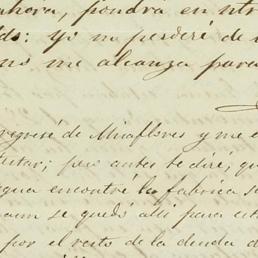 ahora, pondrá en ntr
do: yo no perderé de
me alcanza para
regresé de Miraflores y me
tutar; pero antes te diré, qu
encontré la fabrica
se quedó alli para
por el resto de la deuda d